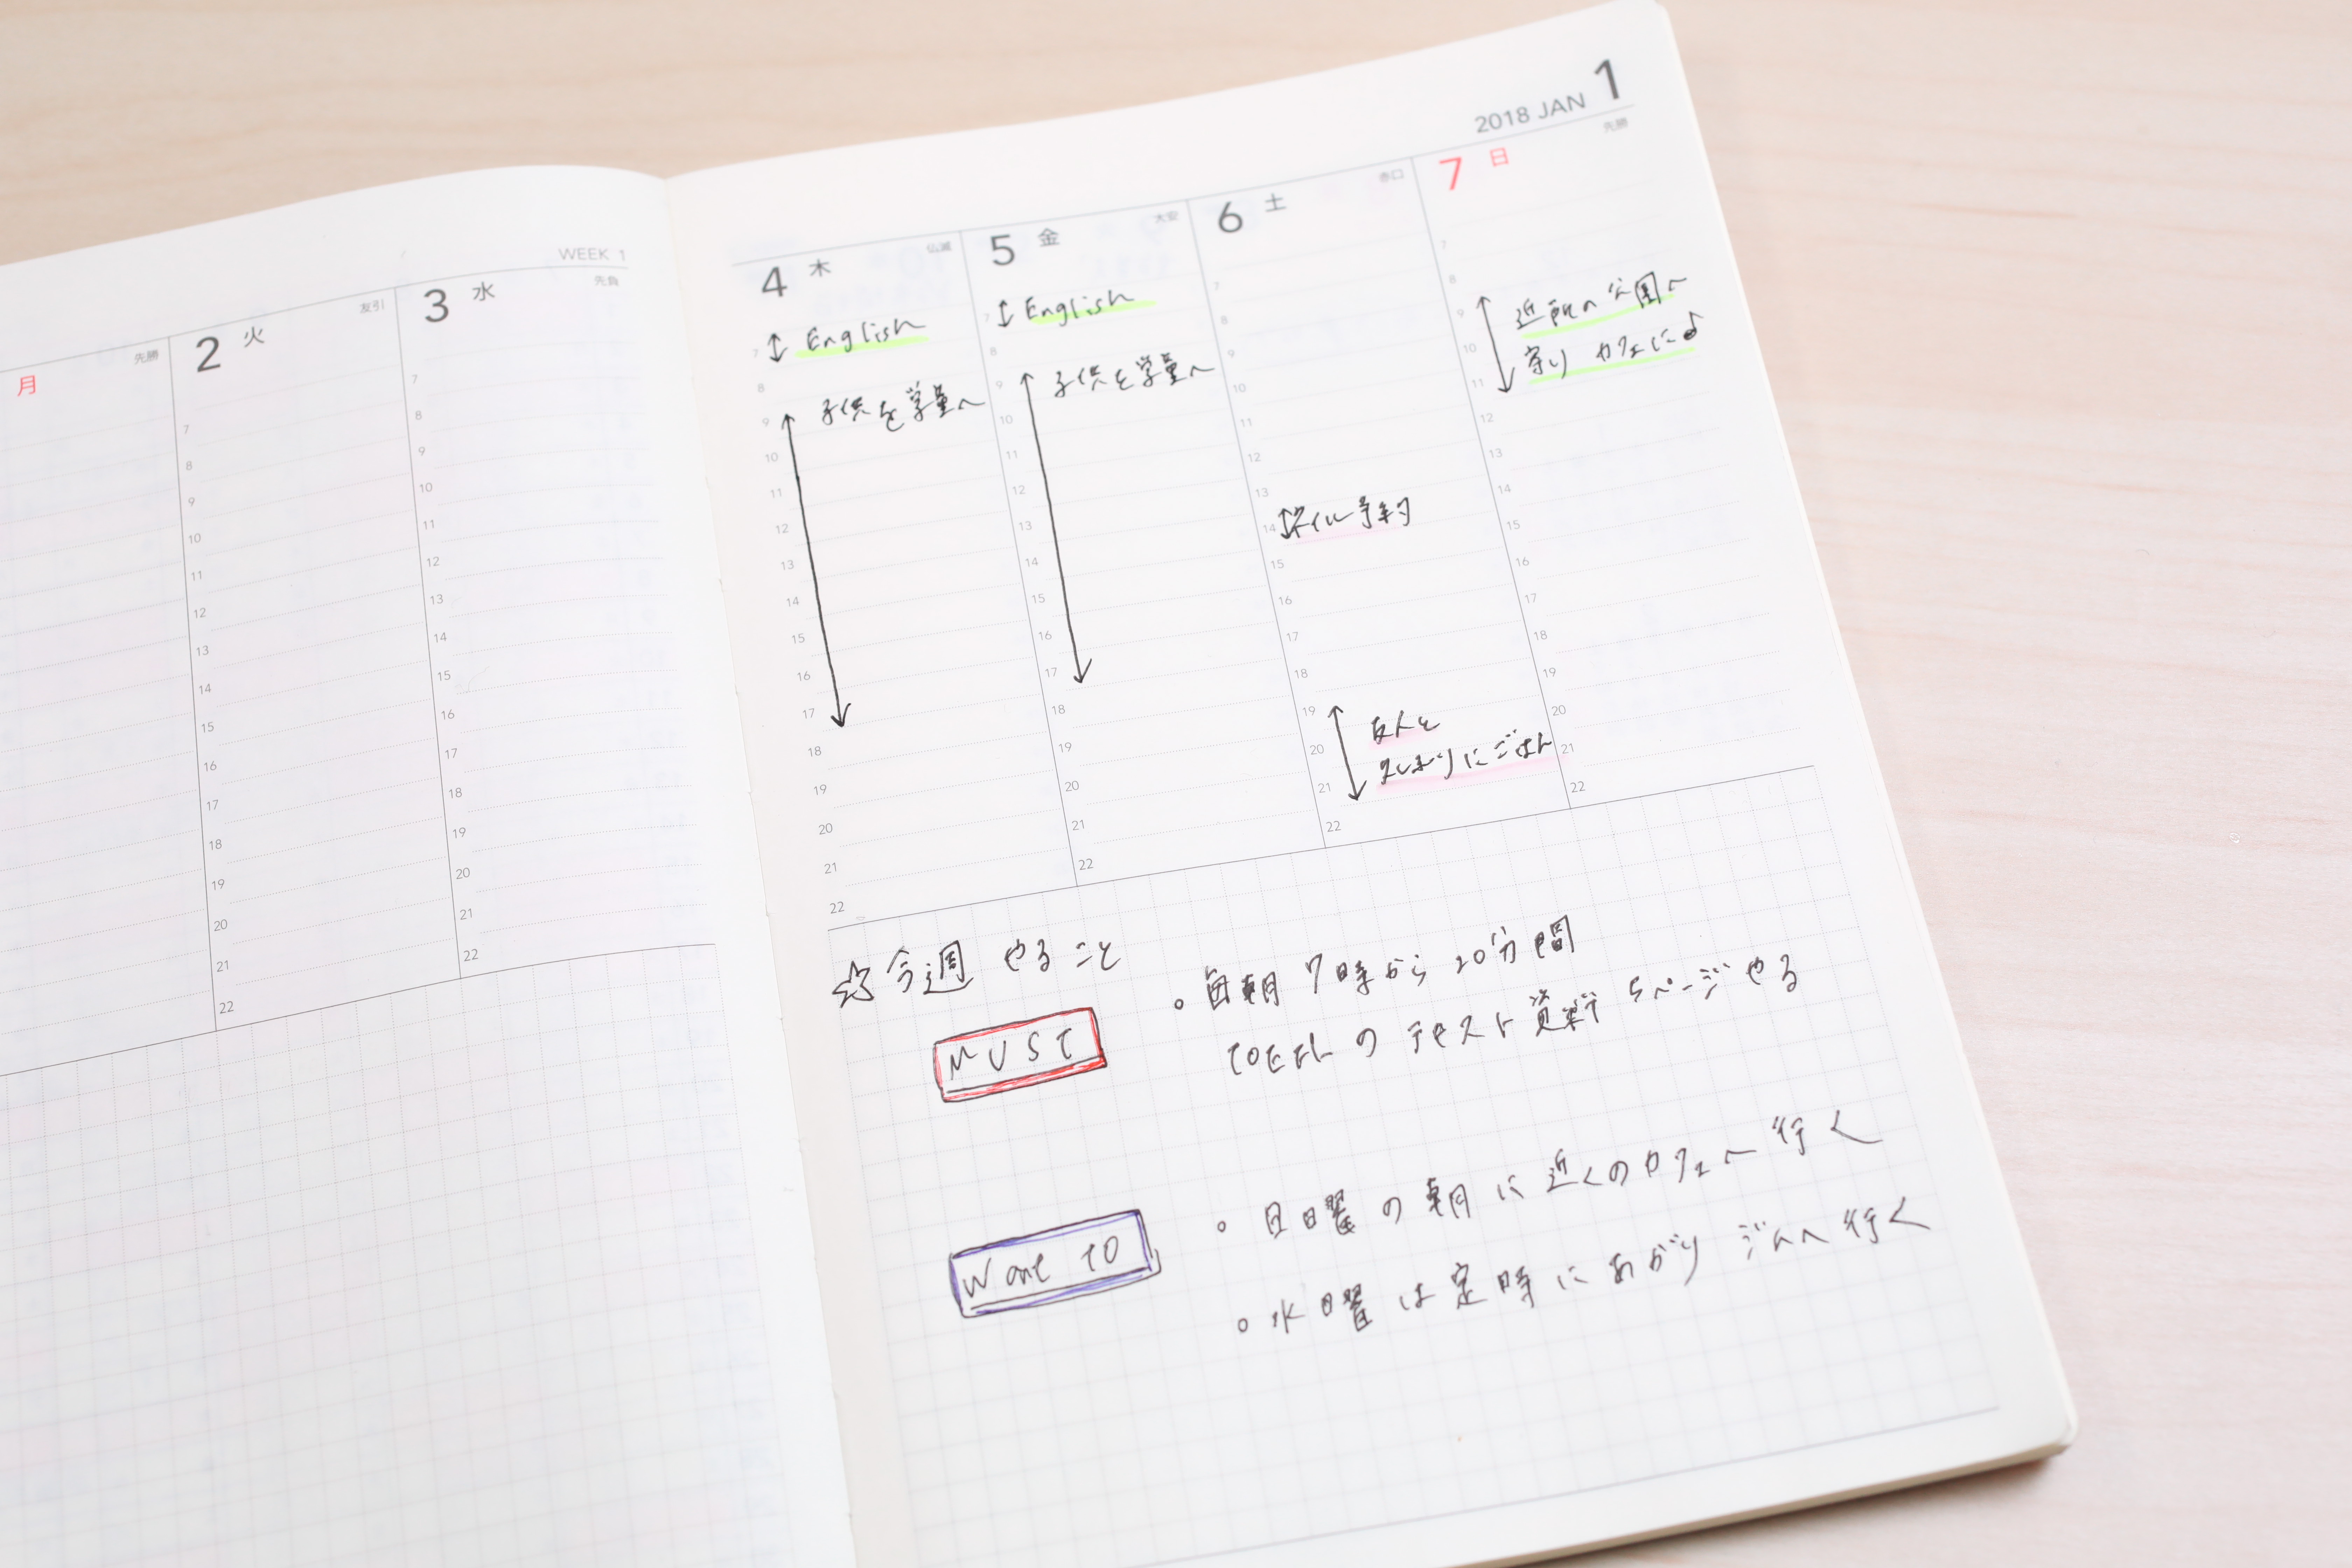 WEEK 1
月 先勝
2 火 友引
3 水 先負
7
8
9
10
11
12
13
14
15
16
17
18
19
20
21
22
7
8
9
10
11
12
13
14
15
16
17
18
19
20
21
22
2018 JAN 1
4 木 仏滅
5 金 大安
6 土 赤口
7 日 先勝
7
8
9
10
11
12
13
14
15
16
17
18
19
20
21
22
English
子供を学童へ
7
8
9
10
11
12
13
14
15
16
17
18
19
20
21
22
English
子供を学童へ
7
8
9
10
11
12
13
14
15
16
17
18
19
20
21
22
ネイル予約
友人と
久しぶりにごはん
7
8
9
10
11
12
13
14
15
16
17
18
19
20
21
22
近所の公園へ
寄り カフェに♪
☆今週 やること
MUST
。毎朝 7時から 20分間
TOEFLの テキスト資料 5ページやる
Want to
。日曜の朝に近くのカフェへ行く
。水曜は定時にあがり ジムへ行く